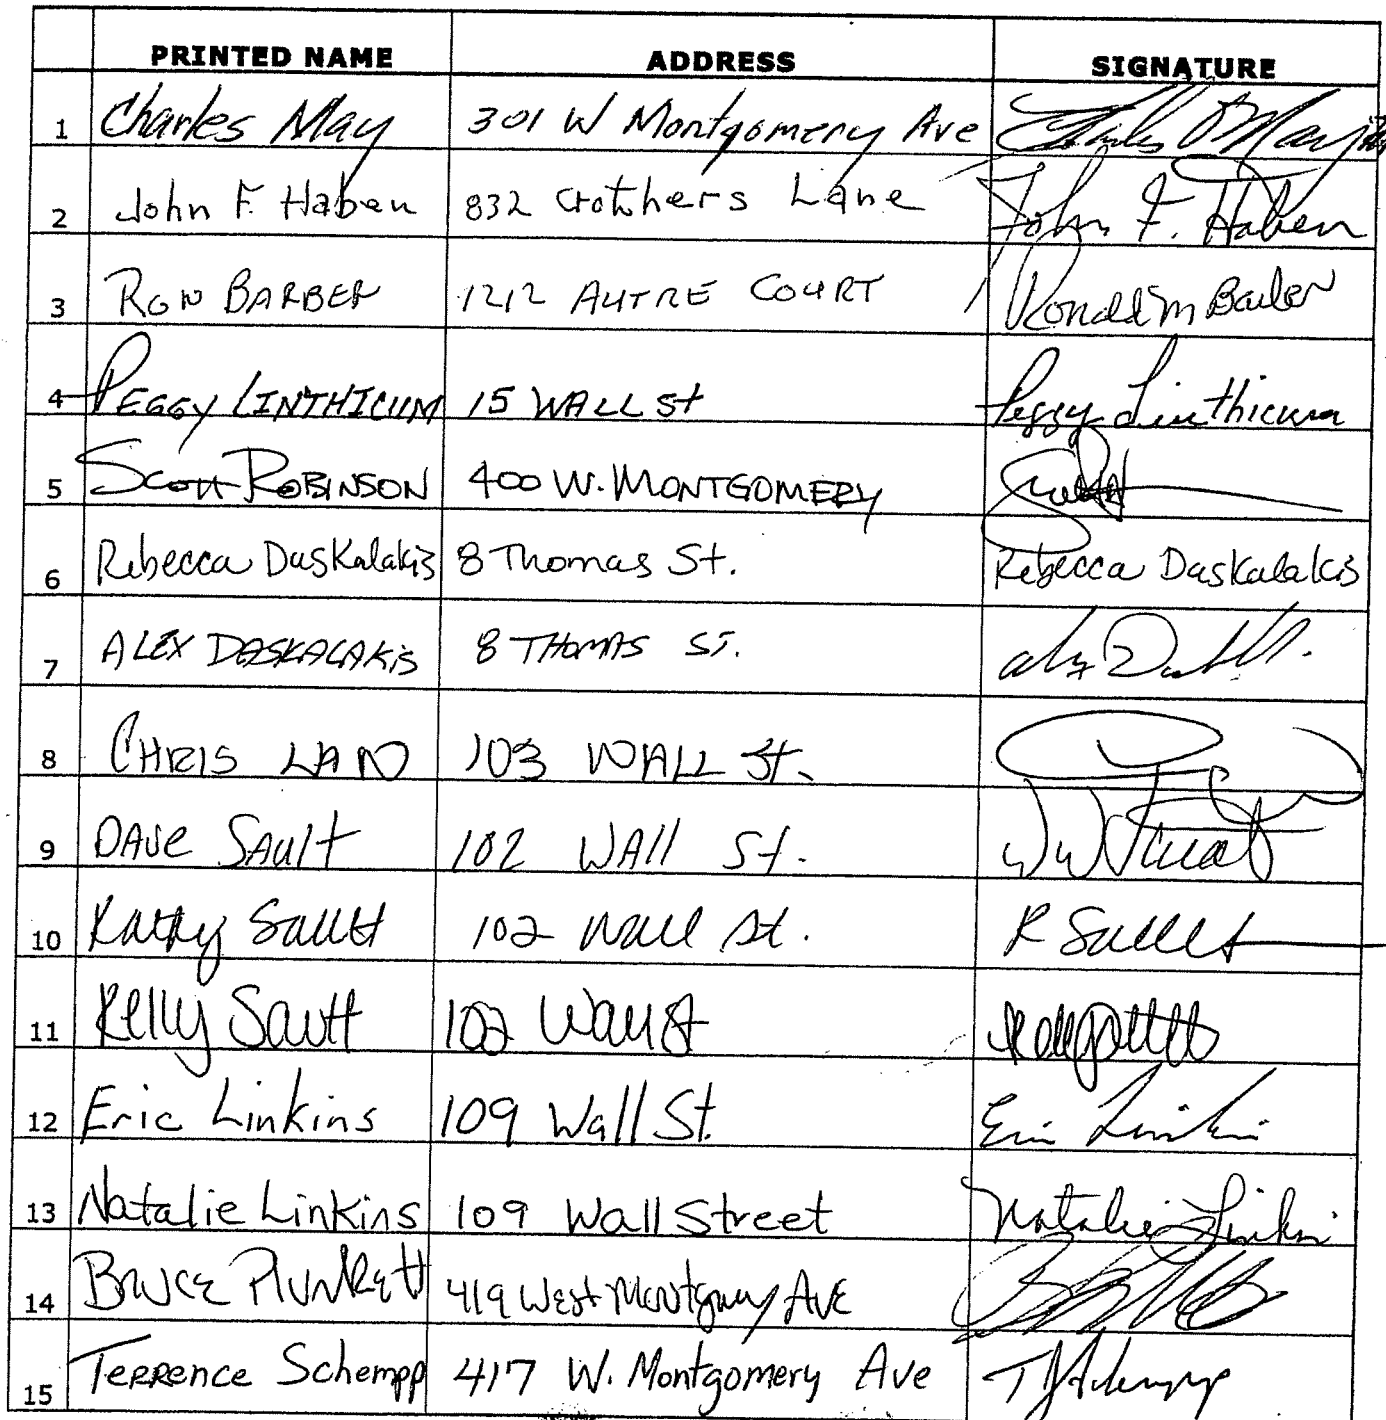 PRINTED NAME ADDRESS SIGNATURE
1 Charles May 301 W Montgomery Ave Charles May
2 John F. Haben 832 Crothers Lane John F. Haben
3 RON BARBER 1212 AUTRE COURT Ronald M Barber
4 PEGGY LINTHICUM 15 WALL St Peggy Linthicum
5 Scott ROBINSON 400 W. MONTGOMERY
6 Rebecca Daskalakis 8 Thomas St. Rebecca Daskalakis
7 ALEX DASKALAKIS 8 THOMAS ST.
8 CHRIS LAN 103 WALL St.
9 DAVE SAULT 102 WAll St.
10 Kathy Sault 102 Wall St. K Sault
11 Kelly Sault 102 Wall St
12 Eric Linkins 109 Wall St. Eric Linkins
13 Natalie Linkins 109 Wall Street Natalie Linkins
14 BRUCE PLUNKETT 419 West Montgomery AVE
15 TERRENCE Schempp 417 W. Montgomery Ave T Schempp